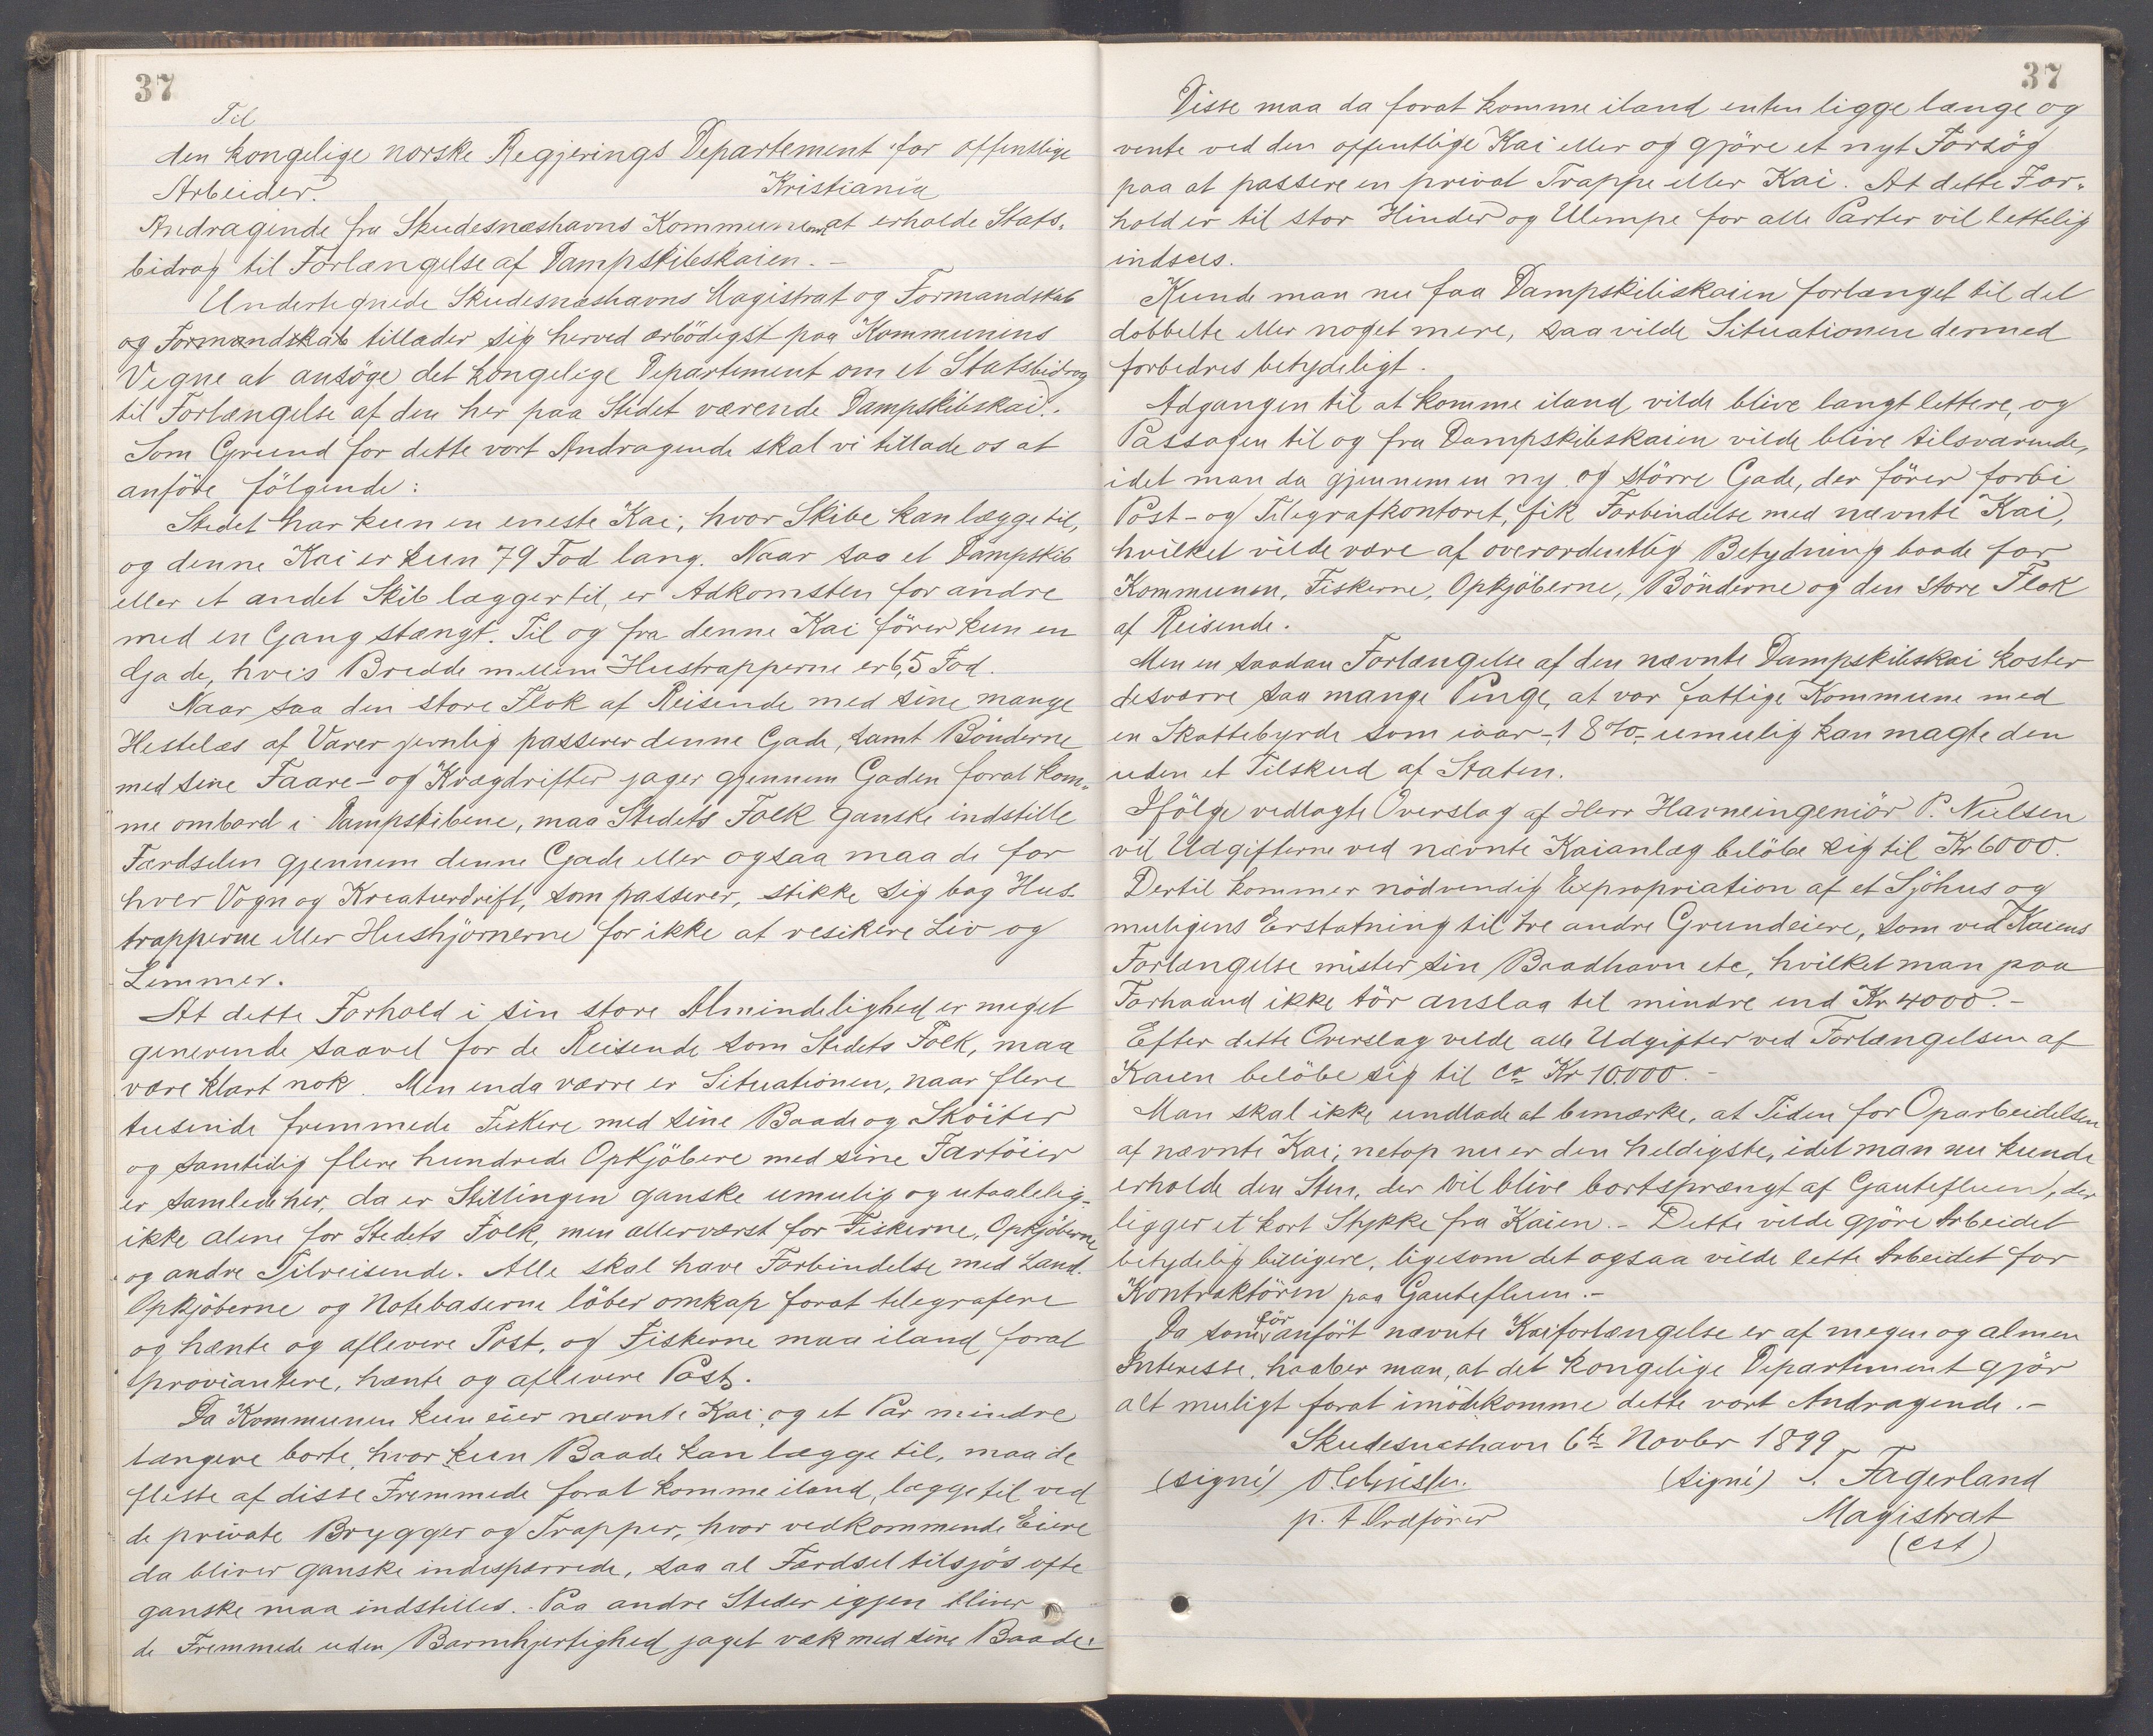 37
Til
den kongelige norske Regjerings Departement for offentlige
Arbeider. Kristiania
Andragende fra Skudesnæshavns Kommune om at erholde Stats-
bidrag til Forlængelse af Dampskibskaien. –
Undertegnede Skudesnæshavns Magistrat og Formandskab
og Formandskab tillader sig herved ærbödigst paa Kommunens
Vegne at ansöge det kongelige Departement om et Statsbidrag
til Forlængelse af den her paa Stedet værende Dampskibskai.
Som Grund for dette vort Andragende skal vi tillade os at
anföre fölgende:
Stedet har kun en eneste Kai, hvor Skibe kan lægge til,
og denne Kai er kun 79 Fod lang. Naar saa et Dampskib
eller et andet Skib lægger til, er Adkomsten for andre
med en Gang stængt. Til og fra denne Kai förer kun en
Gade, hvis Bredde mellem Hustrapperne er 6,5 Fod.
Naar saa den store Flok af Reisende med sine mange
Hestelæs af Varer jevnlig passerer denne Gade, samt Bönderne
med sine Faare- og Kvægdrifter jager gjennem Gaden forat kom-
me ombord i Dampskibene, maa Stedets Folk ganske indstille
Færdselen gjennem denne Gade eller ogsaa maa de for
hver Vogn og Kreaturdrift, som passerer, stikke sig bag Hus-
trapperne eller Hushjörnerne for ikke at resikere Liv og
Lemmer.
At dette Forhold i sin store Almindelighed er meget
generende saavel for de Reisende som Stedets Folk, maa
være klart nok. Men enda værre er Situationen, naar flere
tusinde fremmede Fiskere med sine Baade og Sköiter
og samtidig flere hundrede Opkjöbere med sine Fartöier
er samlede her, da er Stillingen ganske umulig og utaalelig-
ikke alene for Stedets Folk, men allerværst for Fiskerne, Opkjöberne
og andre Tilreisende. Alle skal have Forbindelse med Land.
Opkjöberne og Notebaserne löber omkap forat telegrafere
og hænte og aflevere Post, og Fiskerne maa iland forat
proviantere, hænte og aflevere Post.
Da Kommunen kun eier nævnte Kai og et Par mindre
længere borte, hvor kun Baade kan lægge til, maa de
fleste af disse Fremmede forat komme iland, lægge til ved
de private Brygger og Trapper, hvor vedkommende Eiere
da bliver ganske indesparrede, saa al Færdsel tilsjös ofte
ganske maa indstilles. Paa andre Steder igjen bliver
de Fremmede uden Barmhjertighed jaget væk med sine Baade.
37
Disse maa da forat komme iland enten ligge længe og
vente ved den offentlige Kai eller og gjöre et nyt Forsög
paa at passere en privat Trappe eller Kai. At dette For-
hold er til stor Hinder og Ulempe for alle Parter vil lettelig
indsees.
Kunde man nu faa Dampskibskaien forlænget til det
dobbelte eller noget mere, saa vilde Situationen dermed
forbedres betydeligt.
Adgangen til at komme iland vilde blive langt lettere, og
Passagen til og fra Dampskibskaien vilde blive tilsvarende,
idet man da gjennem en ny og större Gade, der förer forbi
Post- og Telegrafkontoret, fik Forbindelse med nævnte Kai,
hvilket vilde være af overordentlig Betydning baade for
Kommunen, Fiskerne, Opkjöberne, Bönderne og den store Flok
af Reisende.
Men en saadan Forlængelse af den nævnte Dampskibskai koster
desværre saa mange Penge, at vor fattige Kommune med
en Skattebyrde som iaar -18 %- umulig kan magte den
uden et Tilskud af Staten.
Ifölge vedlagte Overslag af Herr Havneingeniör P. Nielsen
vil Udgifterne ved nævnte Kaianlæg belöbe sig til Kr 6000.
Dertil kommer nödvendig Expropriation af et Sjöhus og
muligens Erstatning til tre andre Grundeiere, som ved Kaiens
Forlængelse mister sin Baadhavn etc, hvilket man paa
Forhaand ikke tör anslaa til mindre end Kr 4000. –
Efter dette Overslag vilde alle Udgifter ved Forlængelsen af
Kaien belöbe sig til ca Kr 10.000. –
Man skal ikke undlade at bemærke, at Tiden for Oparbeidelsen
af nævnte Kai, netop nu er den heldigste, idet man nu kunde
erholde den Sten, der vil blive bortsprængt af Gauteflun, der
ligger et kort Stykke fra Kaien. – Dette vilde gjöre Arbeidet
betydelig billigere, ligesom det ogsaa vilde lette Arbeidet for
Kontraktören paa Gauteflun. –
Da som för anfört nævnte Kaiforlængelse er af megen og almen
Interesse, haaber man, at det kongelige Departement gjör
alt muligt forat imödekomme dette vort Andragende. –
Skudesnæshavn 6te Novbr 1899
(signé) (signé) T. Fagerland
p. t Ordförer Magistrat
(cst)